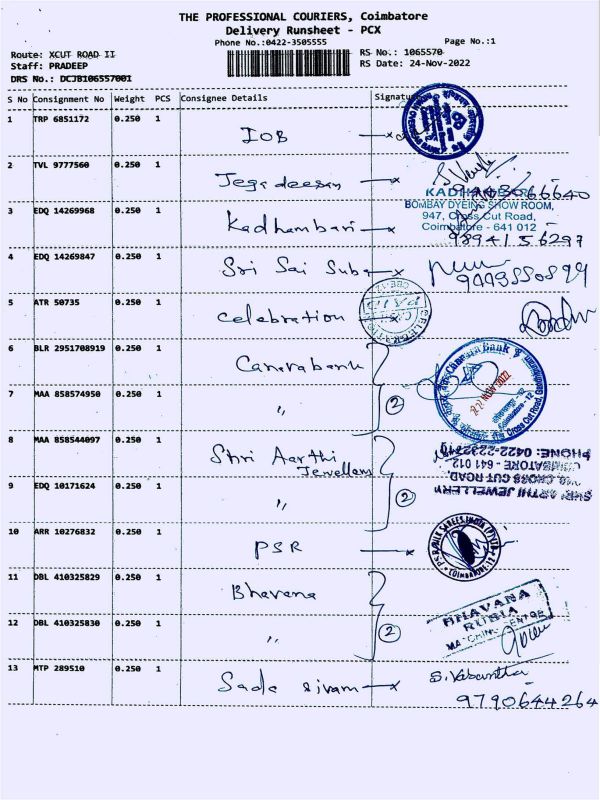 THE PROFESSIONAL COURIERS, Coimbatore
Delivery Runsheet - PCX
Phone No.:0422-3505555 Page No.:1
Route: XCUT ROAD II RS No.: 1065570
Staff: PRADEEP RS Date: 24-Nov-2022
DRS No.: DCJB106557001
S No Consignment No Weight PCS Consignee Details Signature
1 TRP 6851172 0.250 1 IOB
2 TVL 9777560 0.250 1 Jegadeesan
3 EDQ 14269968 0.250 1 Kadhambari
BOMBAY DYEING SHOW ROOM,
947, Cross Cut Road,
Coimbatore - 641 012
98941 56297
4 EDQ 14269847 0.250 1 Sri Sai Suba
5 ATR 50735 0.250 1 Celebration
6 BLR 2951708919 0.250 1 Canarabank
7 MAA 858574950 0.250 1 "
2
8 MAA 858544097 0.250 1 Shri Aarthi
Jewellers
PHONE: 0422-2232710
COIMBATORE - 641 012
CROSS CUT ROAD,
SHRI ARTHI JEWELLERY
9 EDQ 10171624 0.250 1 "
2
10 ARR 10276832 0.250 1 PSR
11 DBL 410325829 0.250 1 Bhavana
BHAVANA
RUBIA
MATCHING CENTRE
12 DBL 410325830 0.250 1 "
2
13 MTP 289510 0.250 1 Sada sivam
S. Vasantha
9790644264